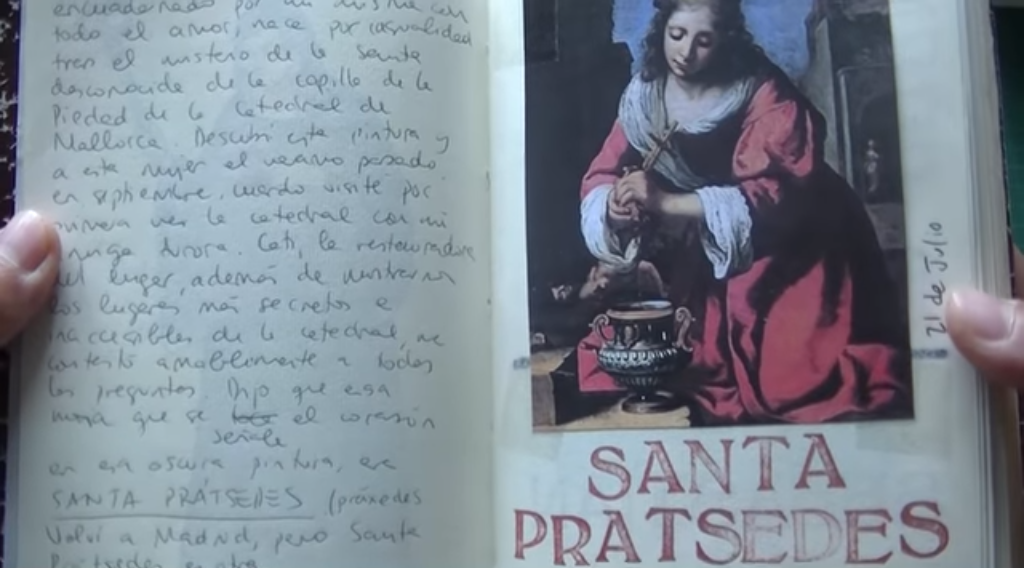 encuadernado por mi misma con
todo el amor, nace por casualidad
tras el misterio de la Santa
desconocida de la capilla de la
Piedad de la Catedral de
Mallorca. Descubrí esta pintura y
a esta mujer el verano pasado
en septiembre, cuando visité por
primera vez la catedral con mi
amiga Aurora. Cati, la restauradora
del lugar, además de mostrarnos
los lugares más secretos e
inaccesibles de la catedral, me
contestó amablemente a todas
las preguntas. Dijo que esa
mona que se el corazón
señala
en esa oscura pintura, era
SANTA PRÁTSEDES (práxedes
Volví a Madrid, pero Santa
Pratsedes
SANTA
PRATSEDES
21 de Julio